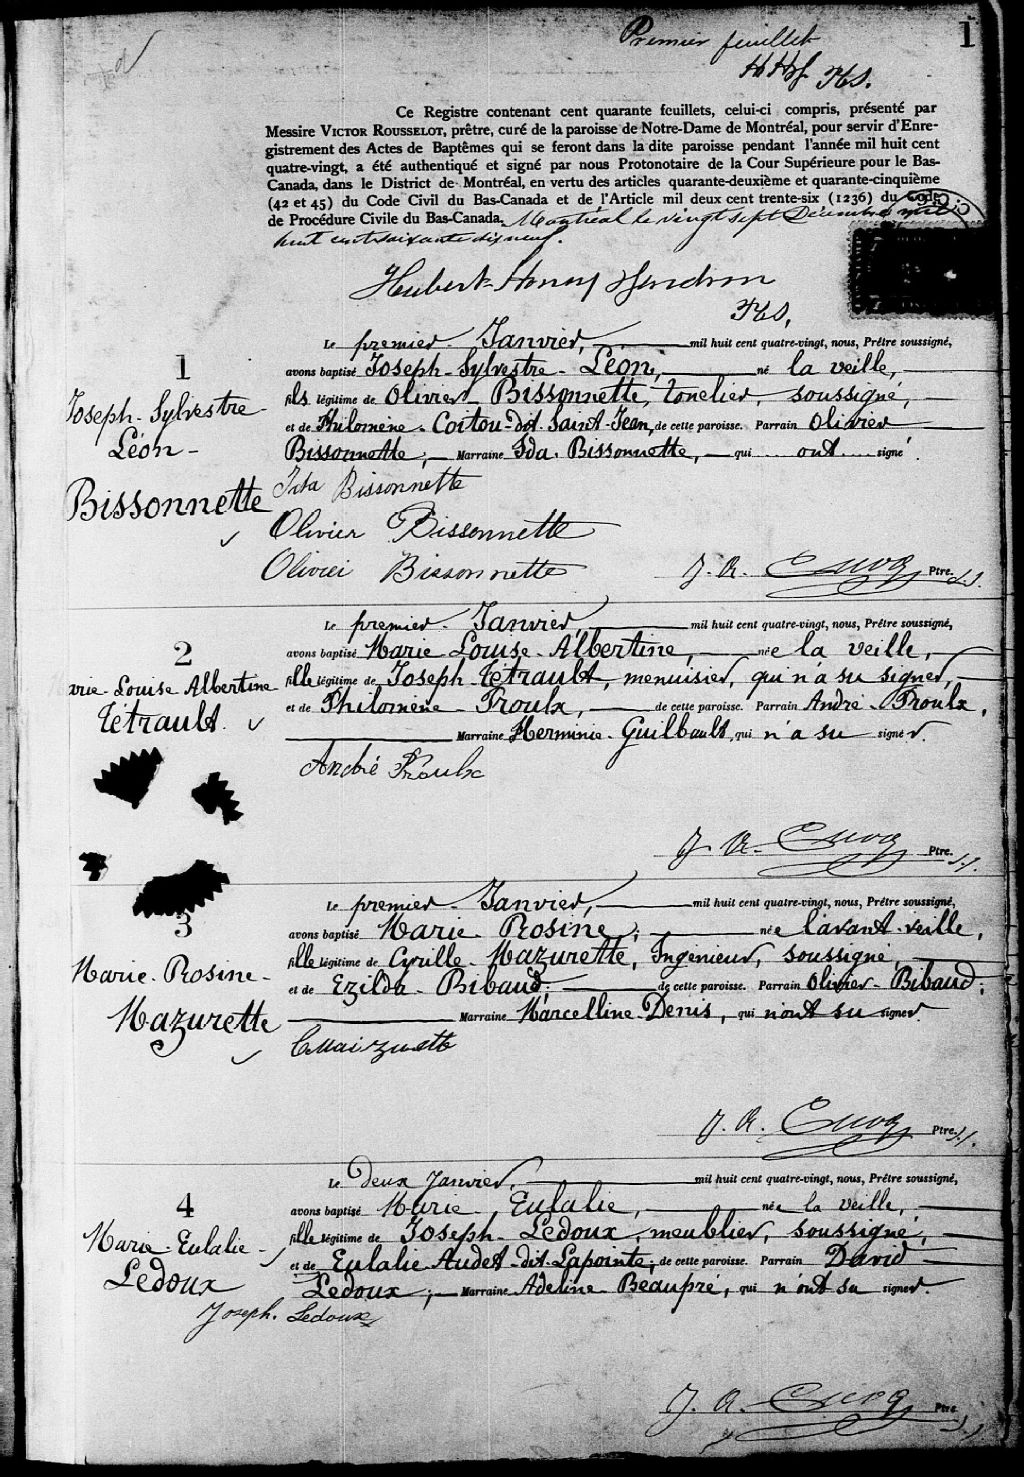 Premier feuillet
1
HHG PHS.
Ce Registre contenant cent quarante feuillets, celui-ci compris, présenté par
Messire VICTOR ROUSSELOT, prêtre, curé de la paroisse de Notre-Dame de Montréal, pour servir d'Enre-
gistrement des Actes de Baptêmes qui se feront dans la dite paroisse pendant l'année mil huit cent
quatre-vingt, a été authentiqué et signé par nous Protonotaire de la Cour Supérieure pour le Bas-
Canada, dans le District de Montréal, en vertu des articles quarante-deuxième et quarante-cinquième
(42 et 45) du Code Civil du Bas-Canada et de l'Article mil deux cent trente-six (1236) du Code
de Procédure Civile du Bas-Canada. Montréal le vingt sept Décembre mil
huit cent soixante dix neuf.
Hubert Honey Gendron
PHS.
1
Joseph-Sylvestre
Léon-
Bissonnette
Le premier Janvier, mil huit cent quatre-vingt, nous, Prêtre soussigné,
avons baptisé Joseph-Sylvestre-Léon, né la veille,
fils légitime de Olivier Bissonnette, tonelier soussigné,
et de Philomène Coitou-dit-Saint-Jean, de cette paroisse. Parrain Olivier
Bissonnette; Marraine Ida Bissonnette, qui ont signé
Ida Bissonnette
Olivier Bissonnette
Olivier Bissonnette
J. A. Cuoq Ptre. S.S.
2
Marie-Louise Albertine
Tétrault.
Le premier Janvier, mil huit cent quatre-vingt, nous, Prêtre soussigné,
avons baptisé Marie Louise-Albertine, née la veille,
fille légitime de Joseph Tétrault, menuisier, qui n'a su signer,
et de Philomène Proulx, de cette paroisse. Parrain André Proulx,
Marraine Herminie Guilbault, qui n'a su signer.
André Proulx
J. A. Cuoq Ptre. S.S.
3
Marie-Rosine-
Mazurette
Le premier Janvier, mil huit cent quatre-vingt, nous, Prêtre soussigné,
avons baptisé Marie Rosine, née l'avant-veille,
fille légitime de Cyrille Mazurette, Ingénieur, soussigné,
et de Ezilda Bibaud; de cette paroisse. Parrain Olivier Bibaud;
Marraine Marcelline Denis, qui n'ont su signer.
C Maizurette
J. A. Cuoq Ptre. S.S.
4
Marie Eulalie
Ledoux
Le deux Janvier, mil huit cent quatre-vingt, nous, Prêtre soussigné,
avons baptisé Marie, Eulalie, née la veille,
fille légitime de Joseph Ledoux, meublier, soussigné,
et de Eulalie Audet-dit-Lapointe, de cette paroisse. Parrain David
Ledoux; Marraine Adeline Beaupré, qui n'ont su signer.
Joseph. Ledoux
J. A. Cuoq Ptre S.S.